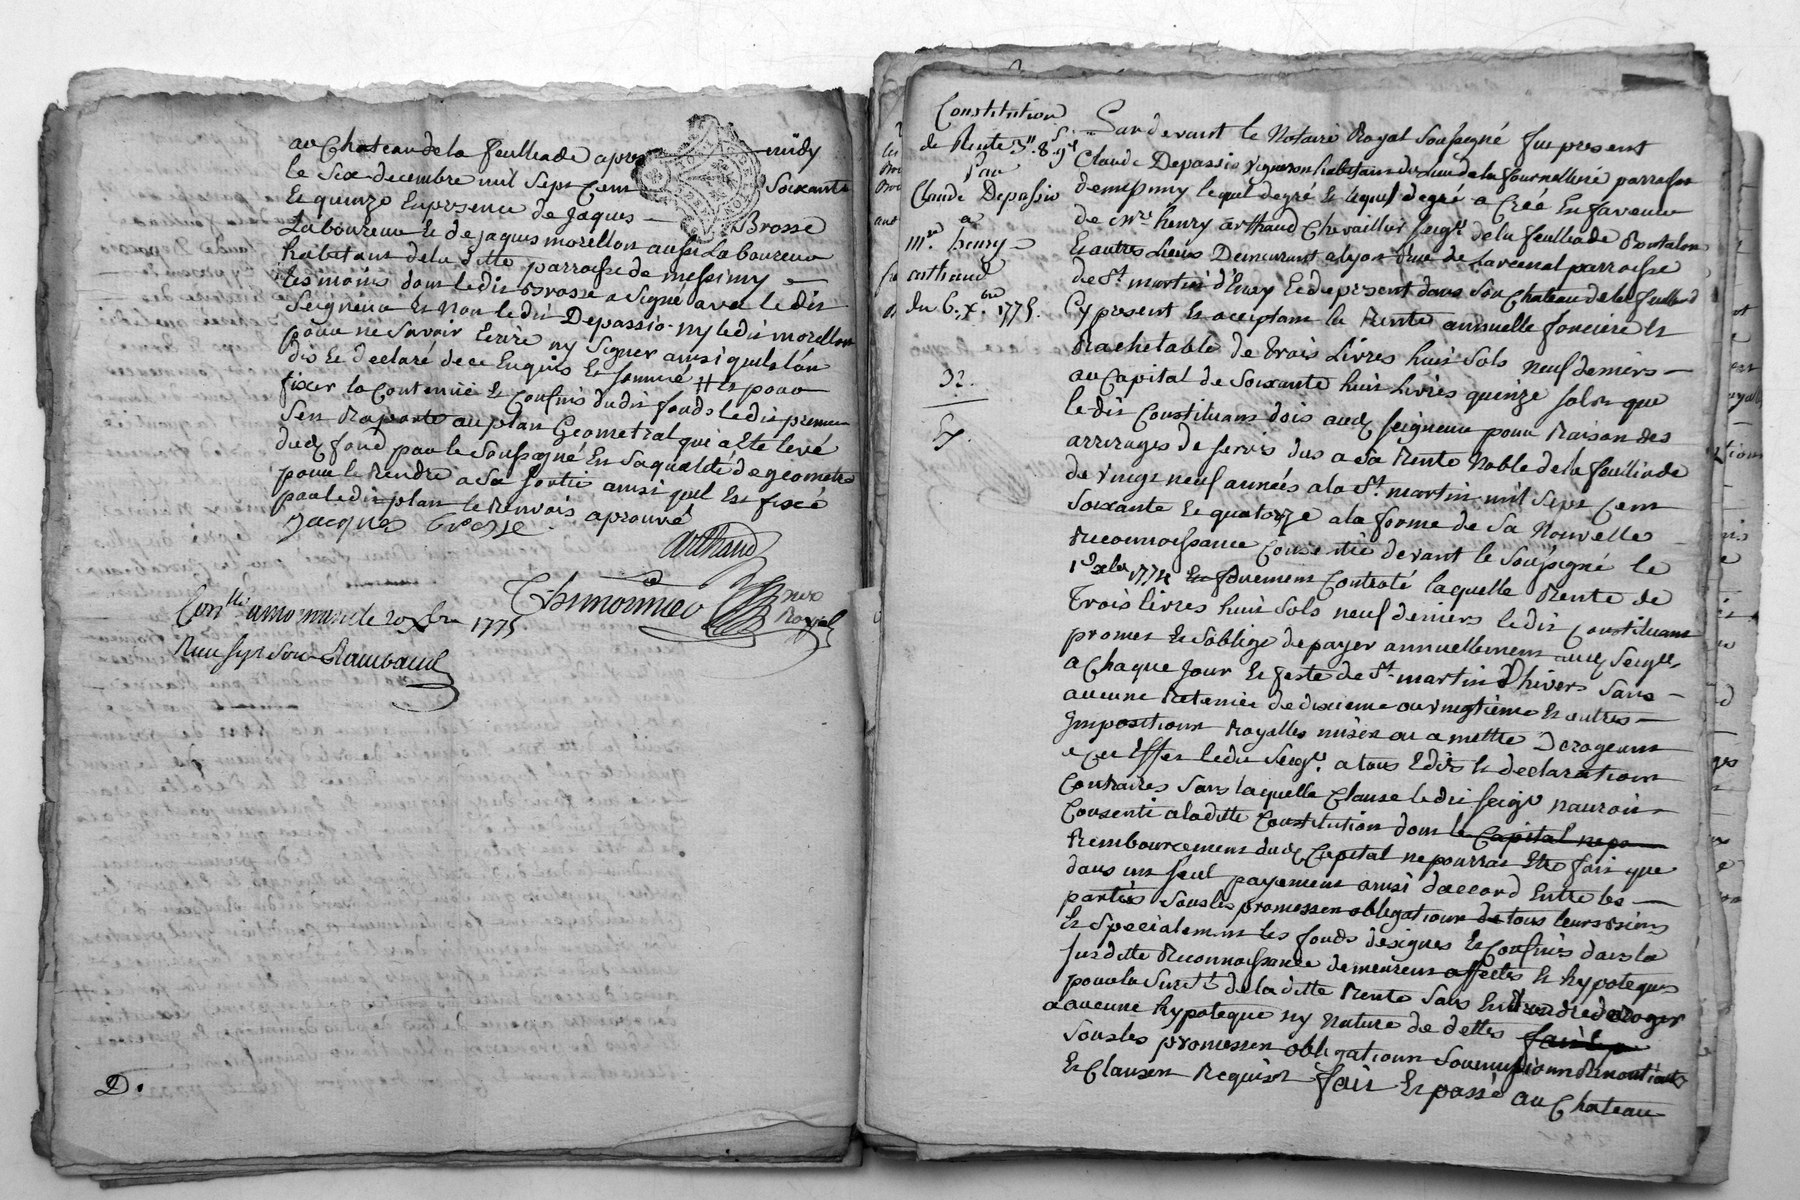 au Chateau de la feullade apres midy
le Six decembre mil Sept Cent Soixante
Et quinze En presence de Jaques Brosse
Laboureur Et de jaques morellon aussi Laboureur
habitans de la ditte parroisse de messimy
tesmoins dont ledit Brosse a Signé avec ledit
Seigneur Et non ledit Depassio ny ledit morellon
pour ne Savoir Ecrire ny Signer ainsi quils lon
dit Et declaré de ce Enquis Et Sommé # Et pour
fixer la Contenue Et Confins dudit fonds ledit
Sen Raporte au plan Geometral qui a Eté levé
dud fond par le Soussigné En Sa qualité de geometre
pour le Rendre a Sa Sortie ainsi quil Est fixé
par ledit plan le Renvois aprouvé
Jacques Brosse
Arthaud
Thimonnier nre
Royal
Con.lle a mornand le 20 xbre 1775
Rambaud
D.
Constitution
de Rente 3ll. 8.s 9d
Par
Claude Depassio
a
Mre. henry
arthaud
du 6. xbre 1775.
32.
Pardevant le Notaire Royal Soussigné fut present
Claude Depassio vigneron habitant du lieu de la fournelliere parroisse
demessimy lequel degré Et lequel degré a Créé En faveur
de Mre henry arthaud Chevaillier Seigr de la feulliade Bontalon
Et autres Lieux Demeurant a lyon Rue de Larcenal parroisse
de St martin d'Enay Et de present dans Son Chateau de la feulliade
Cy present Et acceptant la Rente annuelle fonciere Et
Rachetable de trois Livres huit Sols neuf deniers
au Capital de Soixante huit Livres quinze Sols que
ledit Constituant doit aud Seigneur pour Raison des
arrerages de Servis dus a Sa Rente Noble de la feulliade
de vingt neuf années a la St. martin mil Sept Cent
Soixante Et quatorze a la forme de Sa Nouvelle
Reconnoissance Consentie devant le Soussigné le
1er xbre 1774 Controlé laquelle Rente de
Trois livres huit Sols neuf deniers ledit Constituant
promet Et Soblige de payer annuellement aud Seigr
a Chaque jour Et feste de St. martin D'hiver Sans
aucune Retenüe de dixieme ou vingtieme Et autres
Jmpositions Royalles mises ou a mettre Derogeant
a cet Effet ledit Seigr. a tous Edits Et declarations
Contraires Sans laquelle Clause ledit Seigr nauroit
Consenti a la ditte Constitution dont le Capital ne po
Rembourcement dud Capital ne pourra Etre fait que
dans un Seul payement ainsi daccord Entre les
parties Sous les promesses obligations de tous leurs biens
Et Specialement les fonds designés Et Confinés dans la
Susditte Reconnoissance demeurent affectés Et hypotequés
pour la Sureté de la ditte Rente Sans deroger
a aucune hypoteque ny Nature de dettes
Sous les promesses obligations Soumissions Renontiations
Et Clauses Requises fait Et passé au Chateau